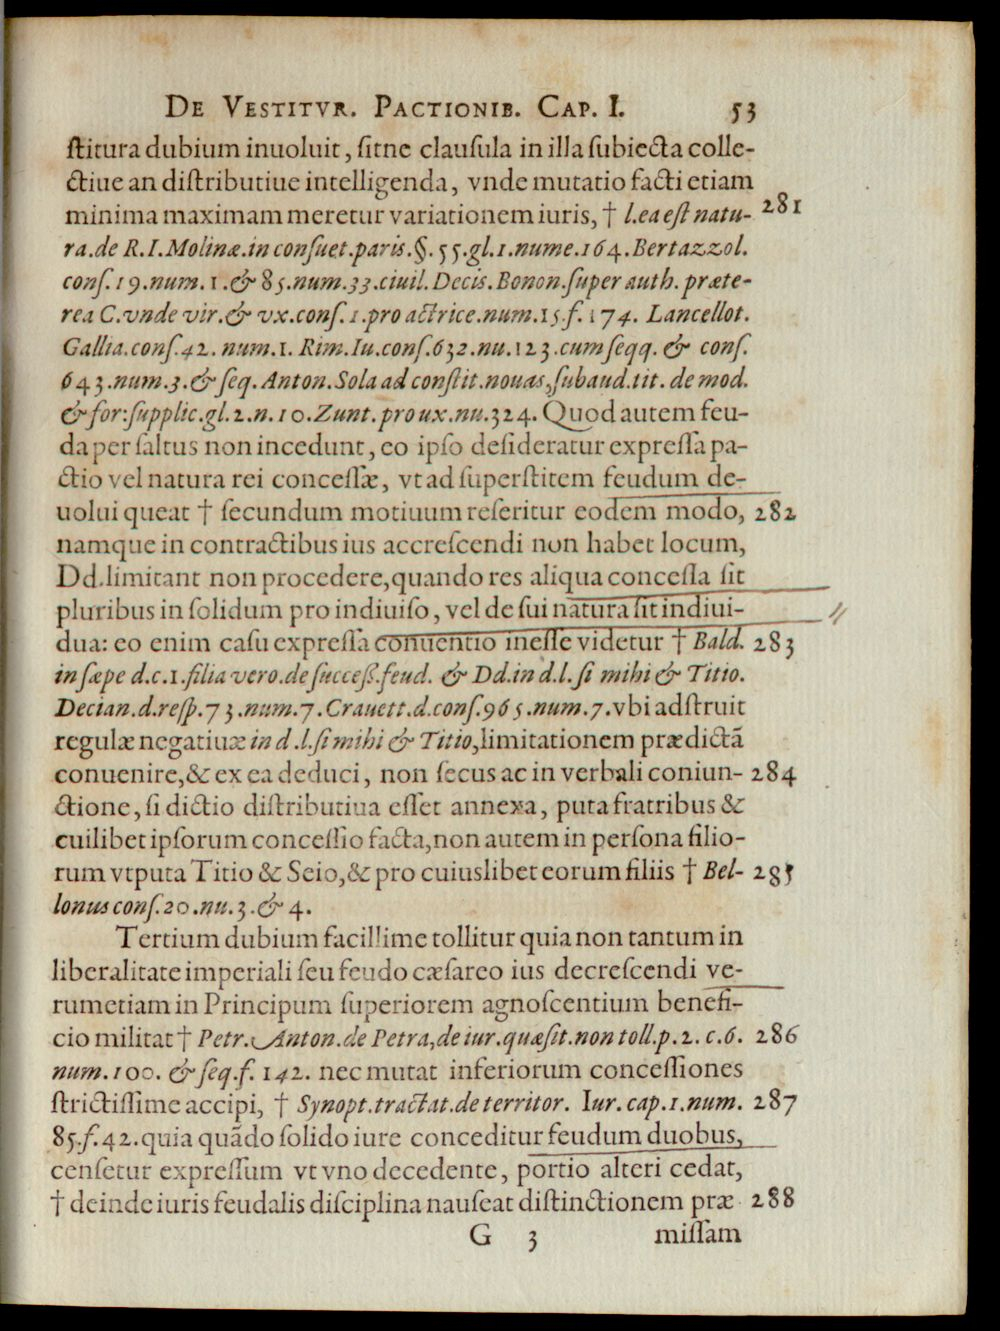 DE VESTITVR. PACTIONIB. CAP. I. 53
ſtitura dubium inuoluit, ſitne clauſula in illa ſubiecta colle-
ctiue an diſtributiue intelligenda, vnde mutatio facti etiam
minima maximam meretur variationem iuris, † l. ea eſt natu- 281
ra. de R. I. Molinæ. in conſuet. paris. §. 55. gl. 1. nume. 164. Bertazzol.
conſ. 19. num. 1. & 85. num. 33. ciuil. Decis. Bonon. ſuper auth. præte-
rea C. vnde vir. & vx. conſ. 1. pro actrice. num. 15. f. 174. Lancellot.
Gallia. conſ. 42. num. 1. Rim. Iu. conſ. 632. nu. 123. cum ſeqq. & conſ.
643. num. 3. & ſeq. Anton. Sola ad conſtit. nouas, ſubaud. tit. de mod.
& for: ſupplic. gl. 2. n. 10. Zunt. pro ux. nu. 324. Quod autem feu-
da per ſaltus non incedunt, eo ipſo deſideratur expreſſa pa-
ctio vel natura rei conceſſæ, vt ad ſuperſtitem feudum de-
uolui queat † ſecundum motiuum reſeritur eodem modo, 282
namque in contractibus ius accreſcendi non habet locum,
Dd. limitant non procedere, quando res aliqua conceſſa ſit
pluribus in ſolidum pro indiuiſo, vel de ſui natura ſit indiui-
dua: eo enim caſu expreſſa conuentio ineſſe videtur † Bald. 283
in ſæpe d. c. 1. filia vero. de ſucceſſ. feud. & Dd. in d. l. ſi mihi & Titio.
Decian. d. reſp. 73. num. 7. Crauett. d. conſ. 965. num. 7. vbi adſtruit
regulæ negatiuæ in d. l. ſi mihi & Titio, limitationem prædictã
conuenire, & ex ea deduci, non ſecus ac in verbali coniun- 284
ctione, ſi dictio diſtributiua eſſet annexa, puta fratribus &
cuilibet ipſorum conceſſio facta, non autem in perſona filio-
rum vtputa Titio & Seio, & pro cuiuslibet eorum filiis † Bel- 285
lonus conſ. 20. nu. 3. & 4.
Tertium dubium facillime tollitur quia non tantum in
liberalitate imperiali ſeu feudo cæſareo ius decreſcendi ve-
rumetiam in Principum ſuperiorem agnoſcentium benefi-
cio militat † Petr. Anton. de Petra, de iur. quæſit. non toll. p. 2. c. 6. 286
num. 100. & ſeq. f. 142. nec mutat inferiorum conceſſiones
ſtrictiſſime accipi, † Synopt. tractat. de territor. Iur. cap. 1. num. 287
85. f. 42. quia quãdo ſolido iure conceditur feudum duobus,
cenſetur expreſſum vt vno decedente, portio alteri cedat,
† deinde iuris feudalis diſciplina nauſeat diſtinctionem præ 288
G 3 miſſam